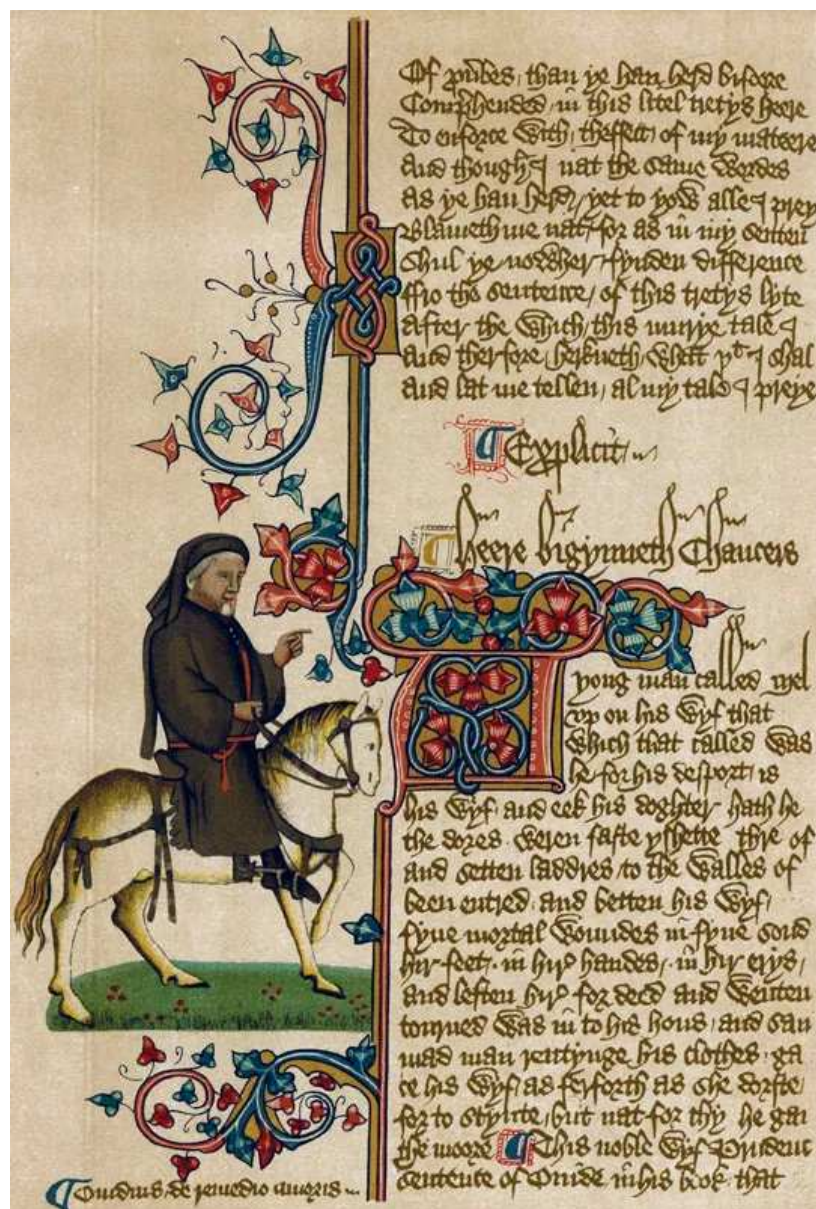 Of prouerbes, than ye han herd bifore
Comprehended, in this litel tretys heere
To enforce with, theffect, of my mateere
And though I nat the same wordes
As ye han herd, yet to yow alle I prey
Blameth me nat, for as in my senten
Shul ye nowher, fynden difference
ffro the sentence, of this tretys lyte
After the which, this murye tale I
And therfore, herkneth, what yt I shal
And lat me tellen, al my tale I preye
Explicit
Heere bigynneth Chaucers
A yong man called Mel
vp on his wyf that
which that called was
he for his desport is
his wyf, and eek his doghter hath he
the dores weren faste yshette thre of
and setten laddres, to the walles of
been entred, and betten his wyf,
fyue mortal woundes in fyue sond
hir feet, in hir handes, in hir erys,
and leften hir for deed and wenten
tourned was in to his hous, and sau
mad man rentynge his clothes, ga
ce his wyf, as ferforth as she dorste,
for to stynte, but nat for thy he gan
the moore This noble wyf Prudenc
sentence of Ouide, in his book that
Ouidius, de remedio amoris